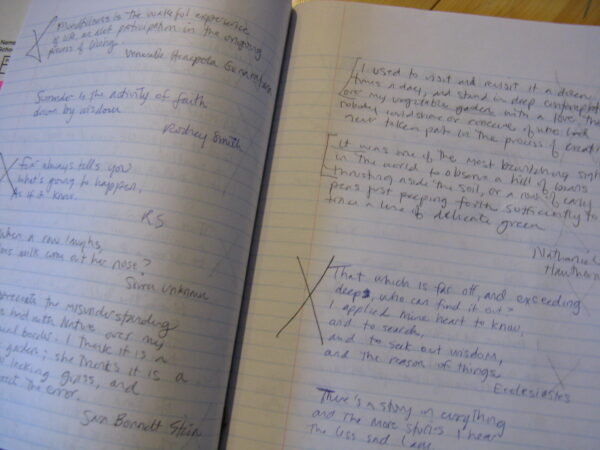 Name
Mindfulness is the wakeful experience
of life, an alert participation in the ongoing
process of living.
Venerable Henepola Gunaratana
Surrender is the activity of faith
driven by wisdom
Rodney Smith
Fear always tells you
what's going to happen,
As if it knew.
RS
When a cow laughs,
does milk come out her nose?
Source Unknown
appreciate the misunderstanding
had with Nature over my
border. I think it is a
garden; she thinks it is a
lacking grass, and
the error.
Sara Bonnett Stein
I used to visit and revisit it a dozen
times a day, and stand in deep contemplation
over my vegetable garden with a love that
nobody could share or conceive of who had
never taken part in the process of creation
It was one of the most bewitching sights
in the world to observe a hill of beans
thrusting aside the soil, or a row of early
peas just peeping forth sufficiently to
trace a line of delicate green
Nathaniel
Hawthorne
That which is far off, and exceeding
deep, who can find it out?
I applied mine heart to know,
and to search,
and to seek out wisdom,
and the reason of things.
Ecclesiastes
There's a story in everything
and the more stories I hear
The less sad I am